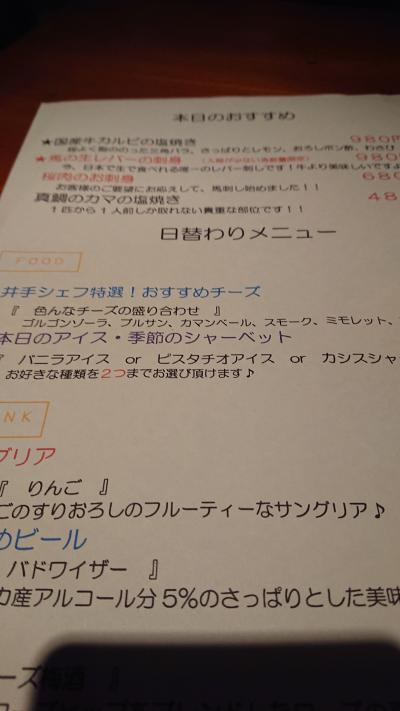 本日のおすすめ
★国産牛カルビの塩焼き 980円
程よく脂ののった三角バラ、さっぱりとレモン、おろしポン酢、わさび
★馬の生レバーの刺身 980
今、日本で生で食べれる唯一のレバー刺しです!牛より美味しいですよ
桜肉のお刺身 680
お客様のご要望にお応えして、馬刺し始めました!!
真鯛のカマの塩焼き 48
1匹から1人前しか取れない貴重な部位です!!
日替わりメニュー
FOOD
井手シェフ特選!おすすめチーズ
『 色んなチーズの盛り合わせ 』
ゴルゴンゾーラ、ブルサン、カマンベール、スモーク、ミモレット、
本日のアイス・季節のシャーベット
『 バニラアイス or ピスタチオアイス or カシスシャ
お好きな種類を2つまでお選び頂けます♪
NK
グリア
『 りんご 』
ごのすりおろしのフルーティーなサングリア♪
めビール
バドワイザー 』
カ産アルコール分5%のさっぱりとした美味
ーズ梅酒 』